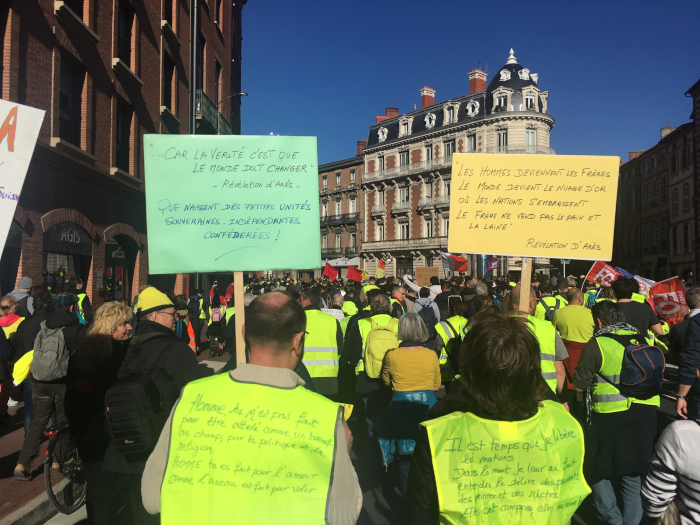 "...CAR LA VERITÉ C'EST QUE
LE MONDE DOIT CHANGER"
- Révélation d'Arès -
QUE NAISSENT DES PETITES UNITÉS
SOUVERAINES, INDÉPENDANTES
CONFÉDÉRÉES !
"LES HOMMES DEVIENNENT DES FRÈRES
LE MONDE DEVIENT LE NUAGE D'OR
OÙ LES NATIONS S'EMBRASSENT
LE FRÈRE NE VEND PAS LE PAIN ET
LA LAINE"
RÉVÉLATION D'ARÈS
A
AGIS
Homme, tu n'es pas fait
pour être attelé comme un bœuf
au champ, par la politique et la
religion,
HOMME tu es fait pour l'amour
comme l'oiseau est fait pour voler
IL EST TEMPS QUE JE libère
les nations
entendre le délire des puissants
des princes et des riches